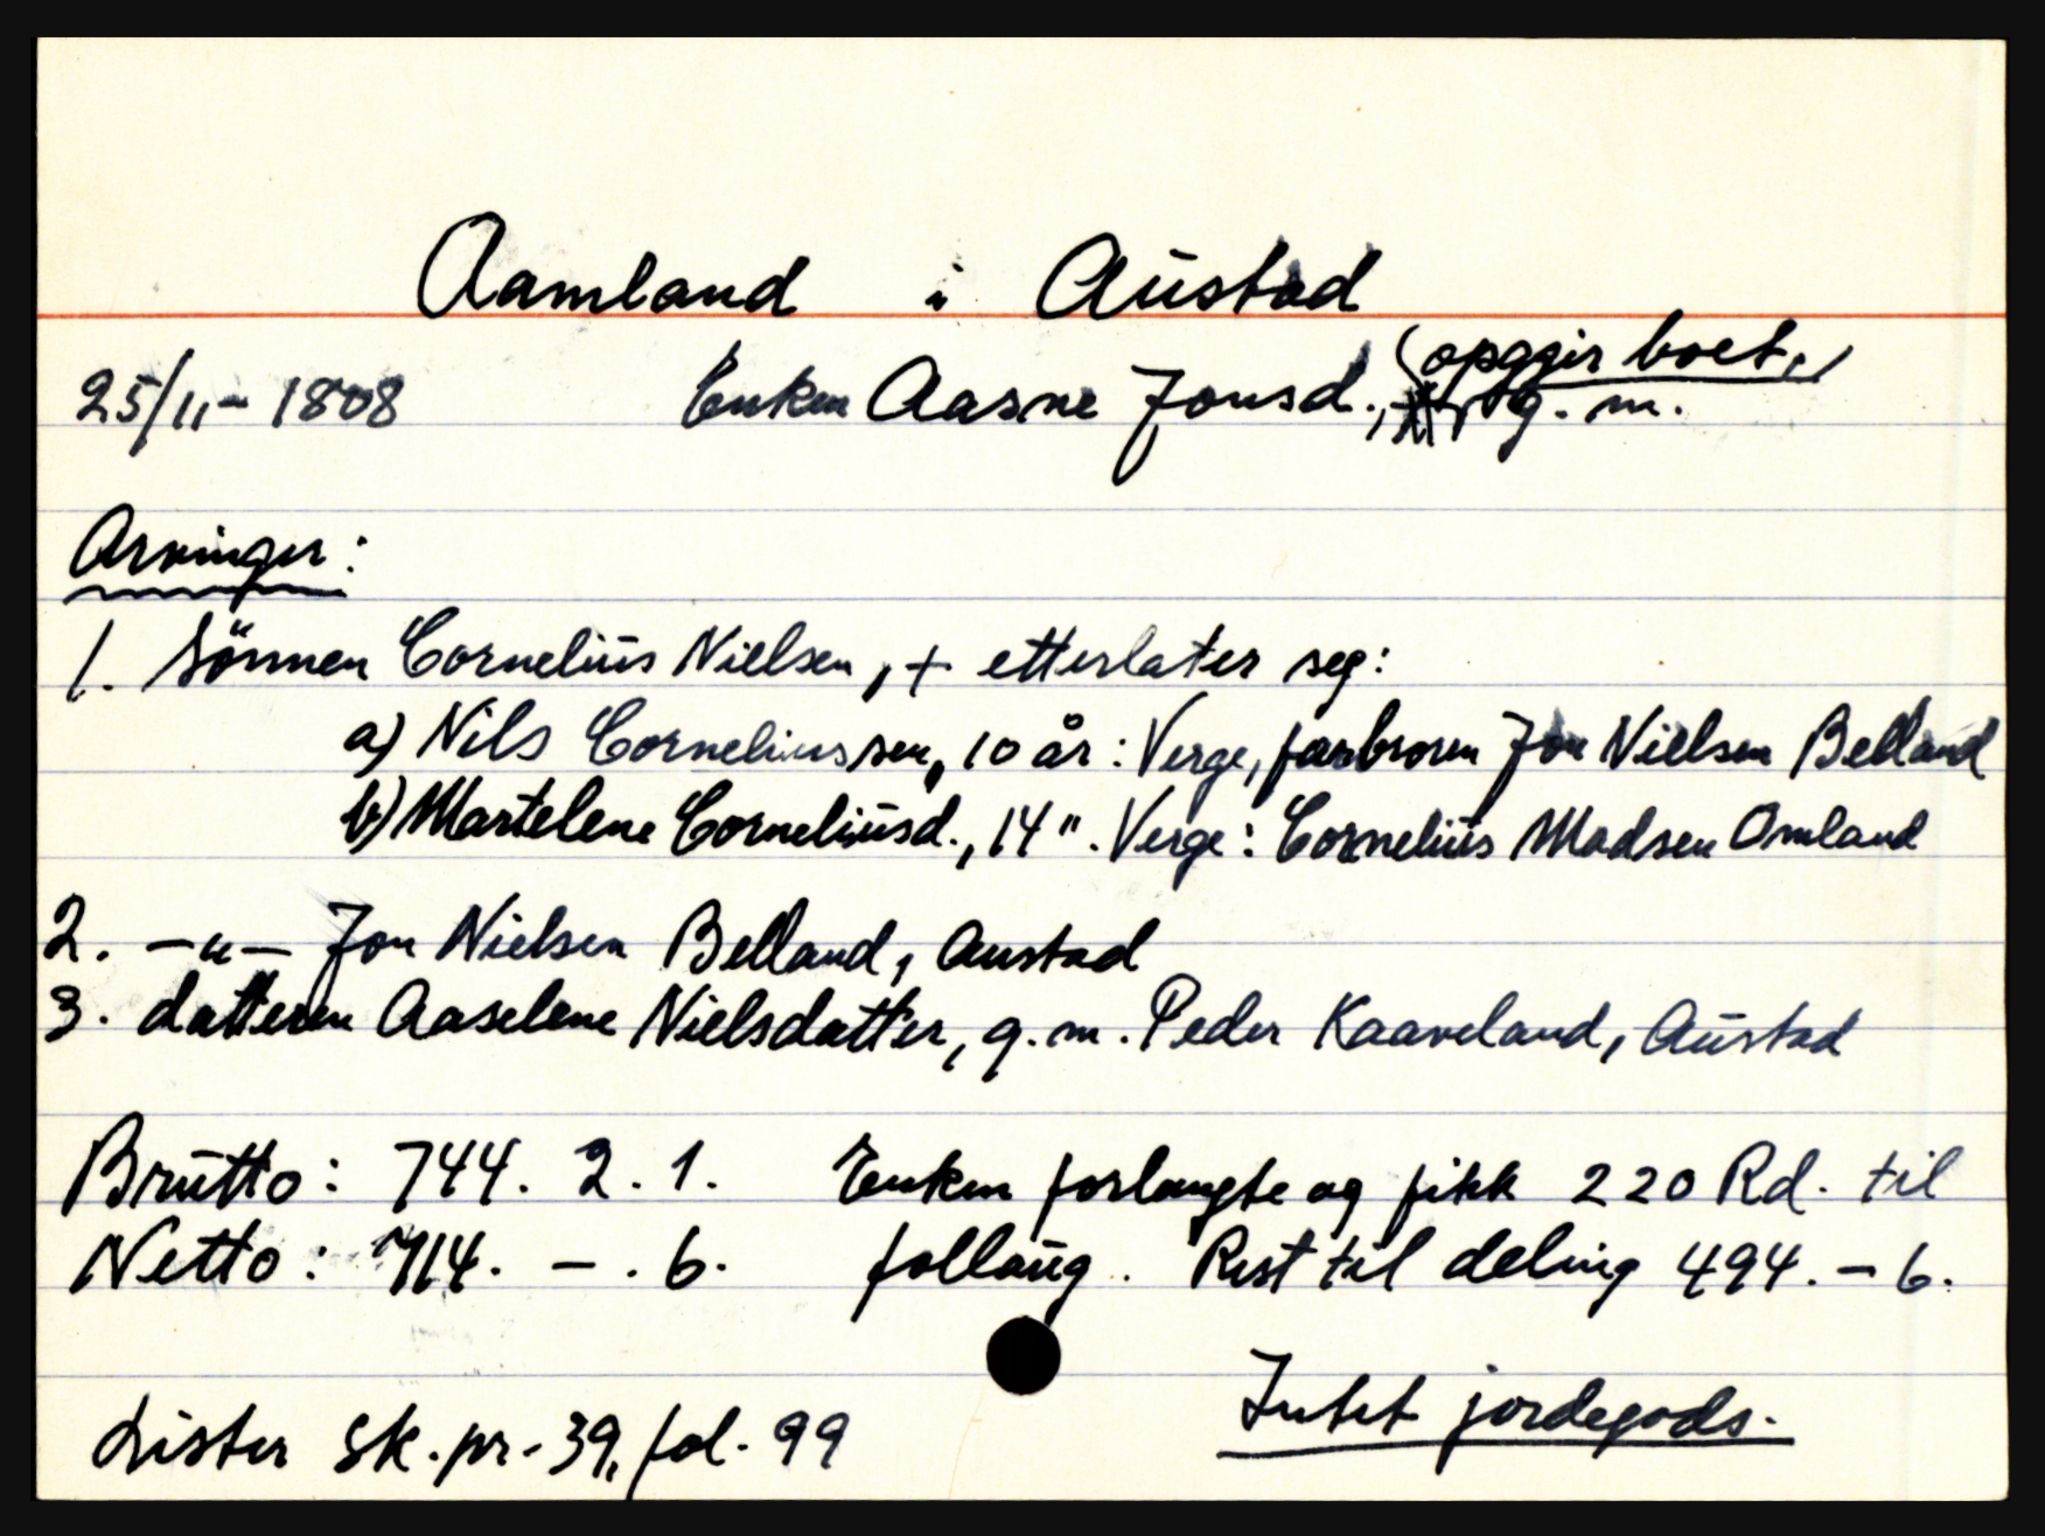 Aamland i Austad
(opggir boet,)
25/11-1808 Enken Aasne Jonsd., g. m.
Arvinger:
1. Sönnen Cornelius Nielsen, + etterlater seg:
a) Nils Corneliussen, 10 år: Verge, farbroren Jon Nielsen Belland
b) Martelene Corneliusd., 14 ". Verge: Cornelius Madsen Omland
2. -"- Jon Nielsen Belland, Austad
3. datteren Aaselene Nielsdatter, g. m. Peder Kaaveland, Austad
Brutto: 744. 2. 1. Enken forlangte og fikk 220 Rd. til
Netto: 714. - . 6. follaug. Rest til deling 494. - 6.
Intet jordegods.
Lister sk.pr. 39, fol. 99